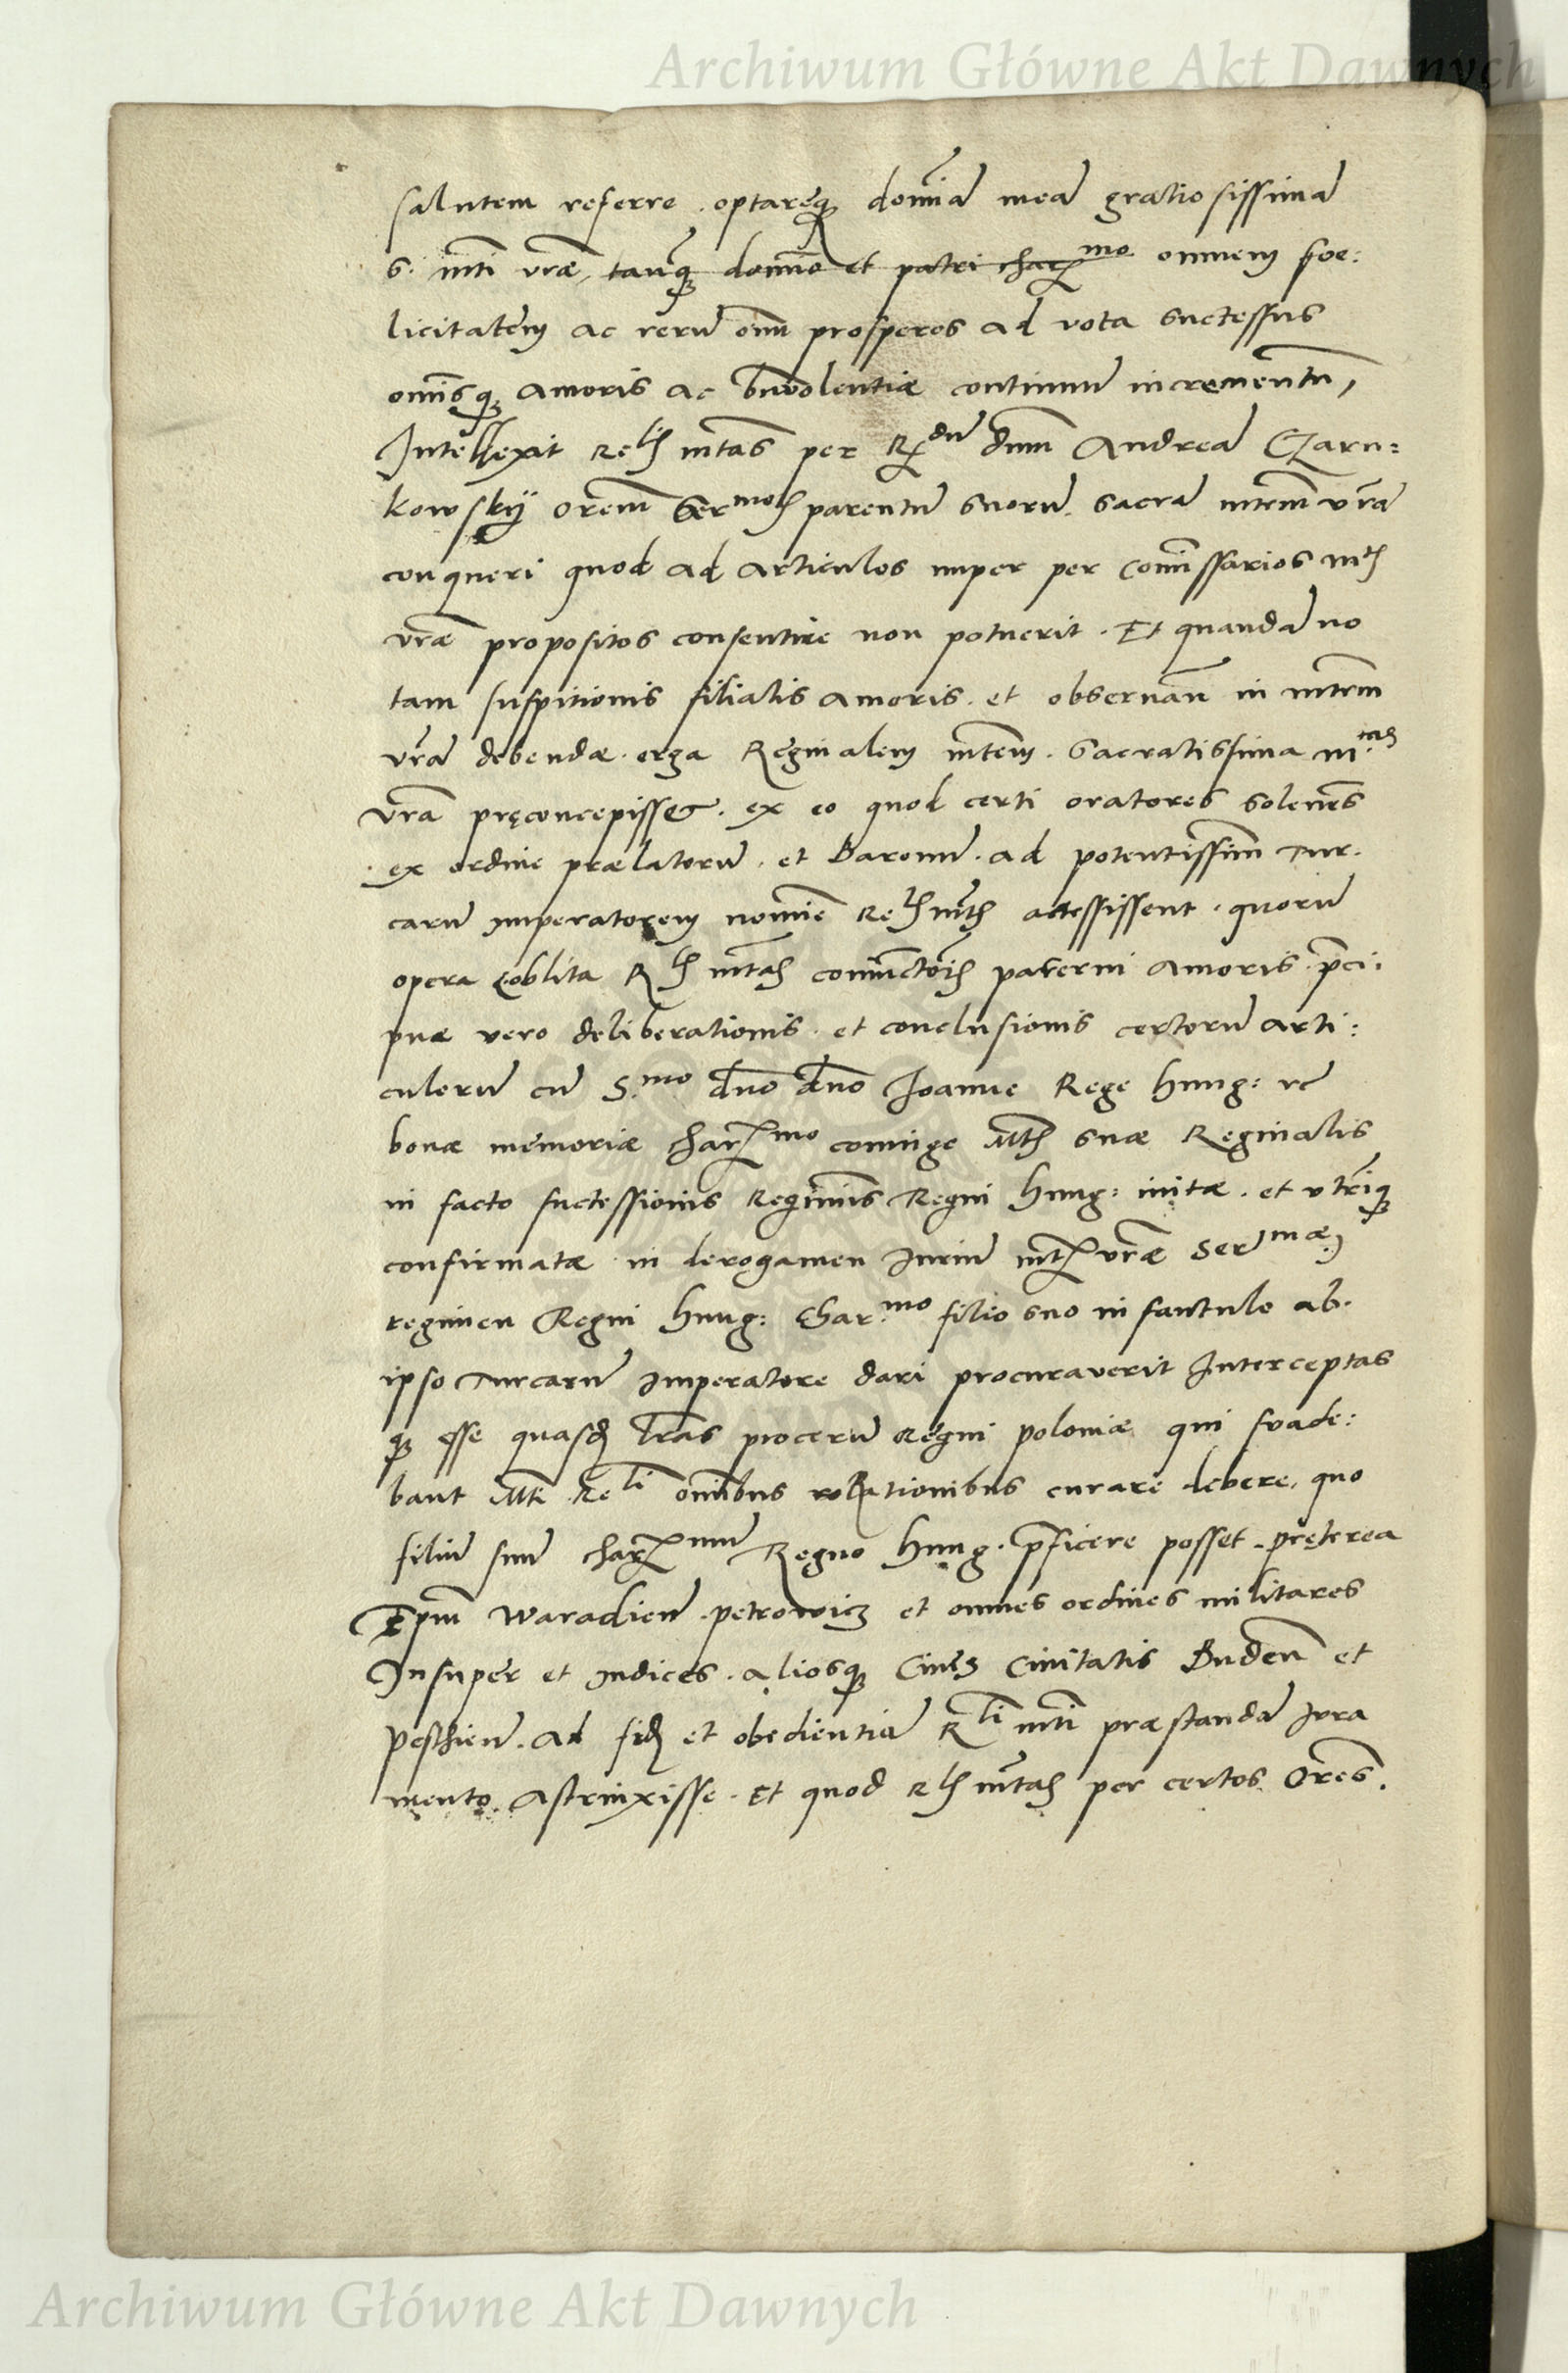 Archiwum Główne Akt Dawnych
salutem referre . optareq; domĩa meã gratiosissimã
S. mti vrãe, tanq; domĩo et patri char^mo omnem foe:
licitatem ac rerũ oĩm prosperos ad vota successus
omĩsq; amoris ac bñvolentiæ continuũ incrementũ,
Intellexit Re^lis mtas per R^dũ dnm Andreã Czarn:
kowskÿ orẽm Ser^mor parentũ suorũ . sacrã mtem vrã
conqueri quod ad articulos nuper per Comĩssarios mtis
vrãe propositos consentire non potuerit . Et quandã no
tam suspitionis filialis amoris . et obseruãn in mtem
vrã debendæ . erga Reginalem mtem . Sacratissima m^tas
vrã pręconcepisset . ex eo quod certi oratores solenes
ex ordine prælatorũ . et Baronũ . ad potentissim̃ Tur.
carũ imperatorem nomĩe Re^lis mtis accessissent . quorũ
opera oblita R^lis mtas coniunctõis paterni amoris . p̃ci.
puæ vero deliberationis . et conclusionis certorũ arti:
culorũ cũ S.^mo dño dño Joanne Rege Hung: etc
bonæ memoriæ char^mo coniuge Mtis suæ Reginalis
in facto successionis Regiminis Regni Hung: initæ . et vtrĩq;
confirmatæ in derogamen Jurium mtis vrãe Ser^mæ
regimen Regni Hung: Char.^mo filio suo infantulo ab.
ipso Turcarũ Imperatore dari procuraverit Interceptas
q; esse quasd lrãs procerũ Regni Poloniæ qui suade:
bant Mti Re^li omĩbus rationibus curare debere, quo
filiũ suũ char^mum Regno Hung . p̃ficere posset . pręterea
Epm̃ Waradien . Petrowicz et omnes ordines militares
Insuper et Judices . aliosq; Ciues Ciuitatis Buden̄ et
Pesthien . Ad fid et obedientiã R^li mti præstandã Jura
mento astrinxisse . Et quod R^lis mtas per certos Orẽs.
Archiwum Główne Akt Dawnych